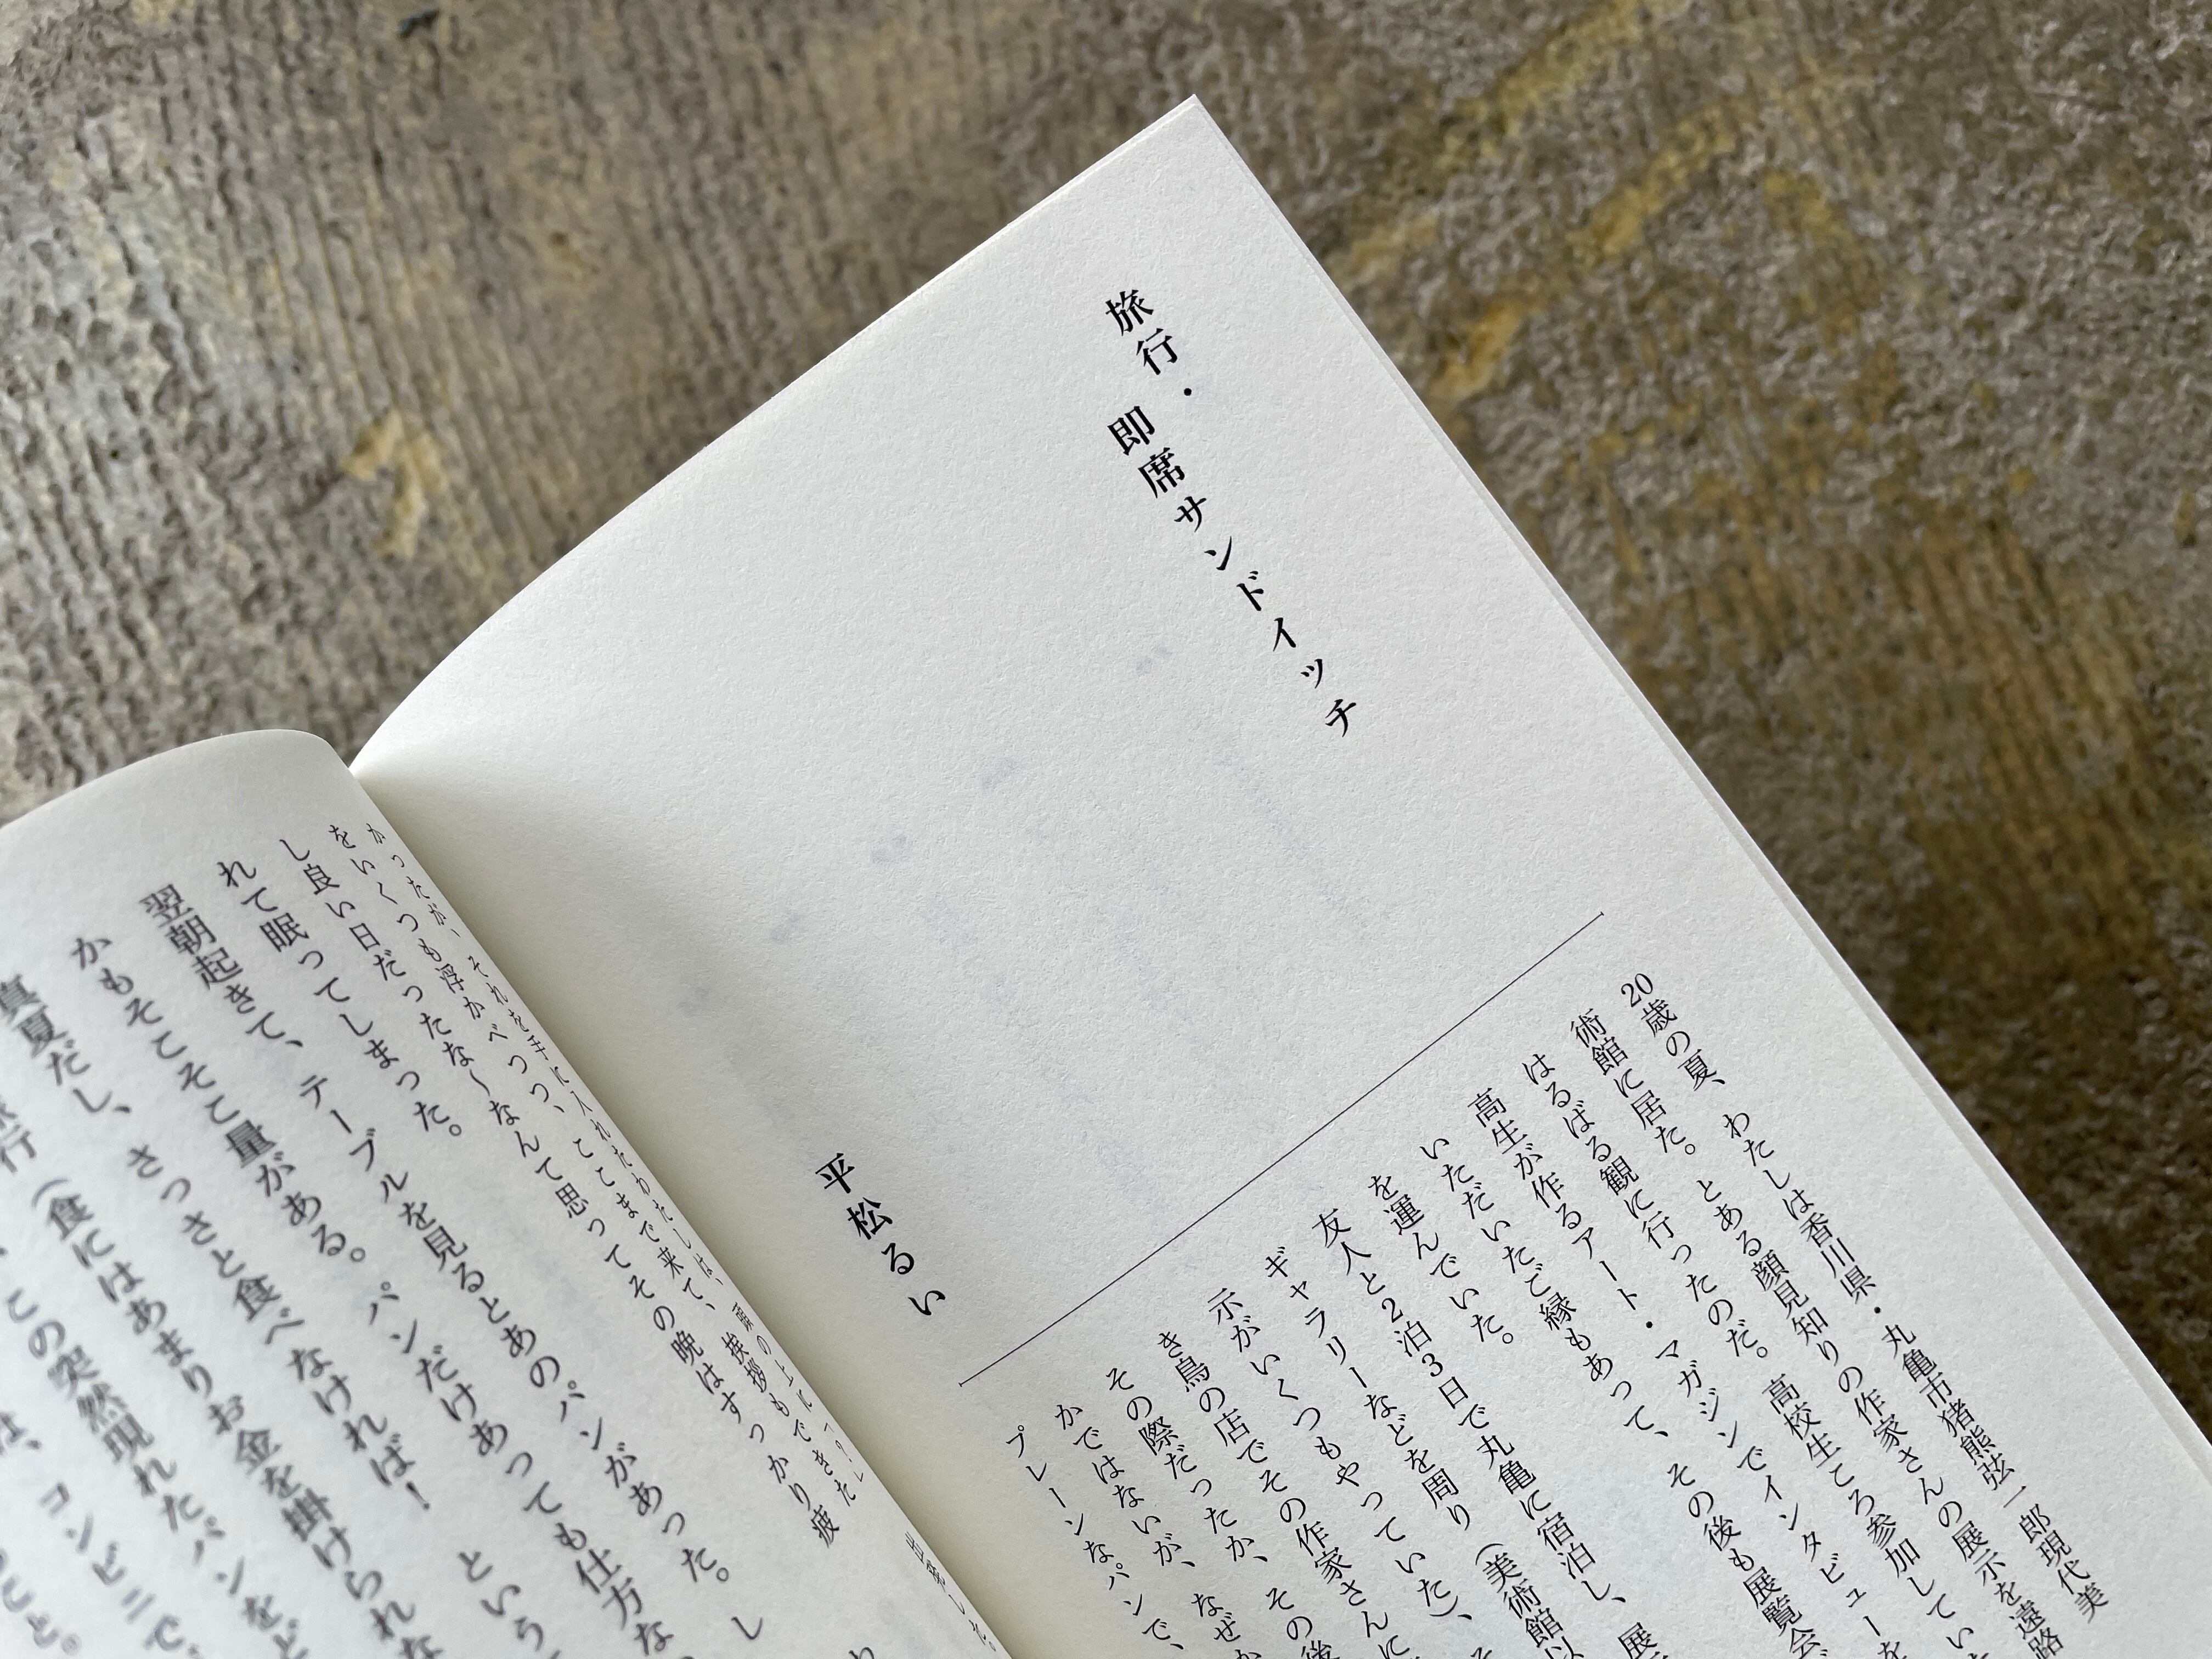 旅行・即席サンドイッチ
平松るい
20歳の夏、わたしは香川県・丸亀市猪熊弦一郎現代美
術館に居た。とある顔見知りの作家さんの展示を遠路
はるばる観に行ったのだ。高校生ころ参加してい
高生が作るアート・マガジンでインタビューを
いただいたご縁もあって、その後も展覧会
を運んでいた。
友人と2泊3日で丸亀に宿泊し、展
ギャラリーなどを周り（美術館以
示がいくつもやっていた）、そ
き鳥の店でその作家さんに
その際だったか、その後
かではないが、なぜか
プレーンなパンで、
かったが、それを手に入れたわたしは、頭の上に
をいくつも浮かべつつ、ここまで来て、挨拶もできた
し良い日だったな〜なんて思ってその晩はすっかり疲
れて眠ってしまった。
翌朝起きて、テーブルを見るとあのパンがあった。し
かもそこそこ量がある。パンだけあっても仕方な
真夏だし、さっさと食べなければ！という
旅行（食にはあまりお金を掛けられな
この突然現れたパンをど
は、コンビニで、
こと。